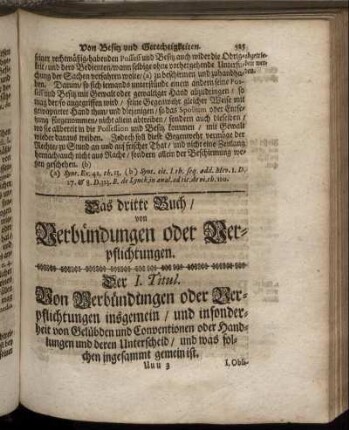 Von Besitz und Gerechtigkeiten. 525
seiner rechtmäßig habenden Possess und Besitz auch wider die Obrig-
keit/ und dero Bedienten/wann selbige ohne vorhergehende Untersu-
chung der Sachen verfahren wolte/ (a) zu beschirmen und zuhandha-
ben. Darum/ so sich iemand unterstünde einen andern seine Pos-
seß und Besitz mit Gewalt oder gewaltiger Hand abzudringen/ so
mag der so angegriffen wird/ seine Gegenwehr gleicher Weise mit
gewapneter Hand thun/ und diejenigen/ so das Spolium oder Entse-
tzung fürgenommen/ nicht allein abtreiben/ sondern auch dieselben/
wo sie allbereit in die Possession und Besitz kommen/ mit Gewalt
wieder daraus treiben. Jedoch soll diese Gegenwehr vermöge der
Rechte/ zu Stund an und auf frischer That/ und nicht eine Zeitlang
hernachmals nicht aus Rache/ sondern allein der Beschirmung we-
gen geschehen. (b)
(a) Synt. Ex. 42. th. 13. (b) Synt. cit. l. th. seq. add. Mev.
Das dritte Buch/
von
Verbündungen oder Ver-
pflichtungen.
Der I. Titul.
Von Verbündungen oder Ver-
pflichtungen insgemein/ und insonder-
heit von Gelübden und Conventionen oder Hand-
lungen und deren Unterscheid/ und was sol-
chen ingesammt gemein ist.
Uuu 3 1. Obli-